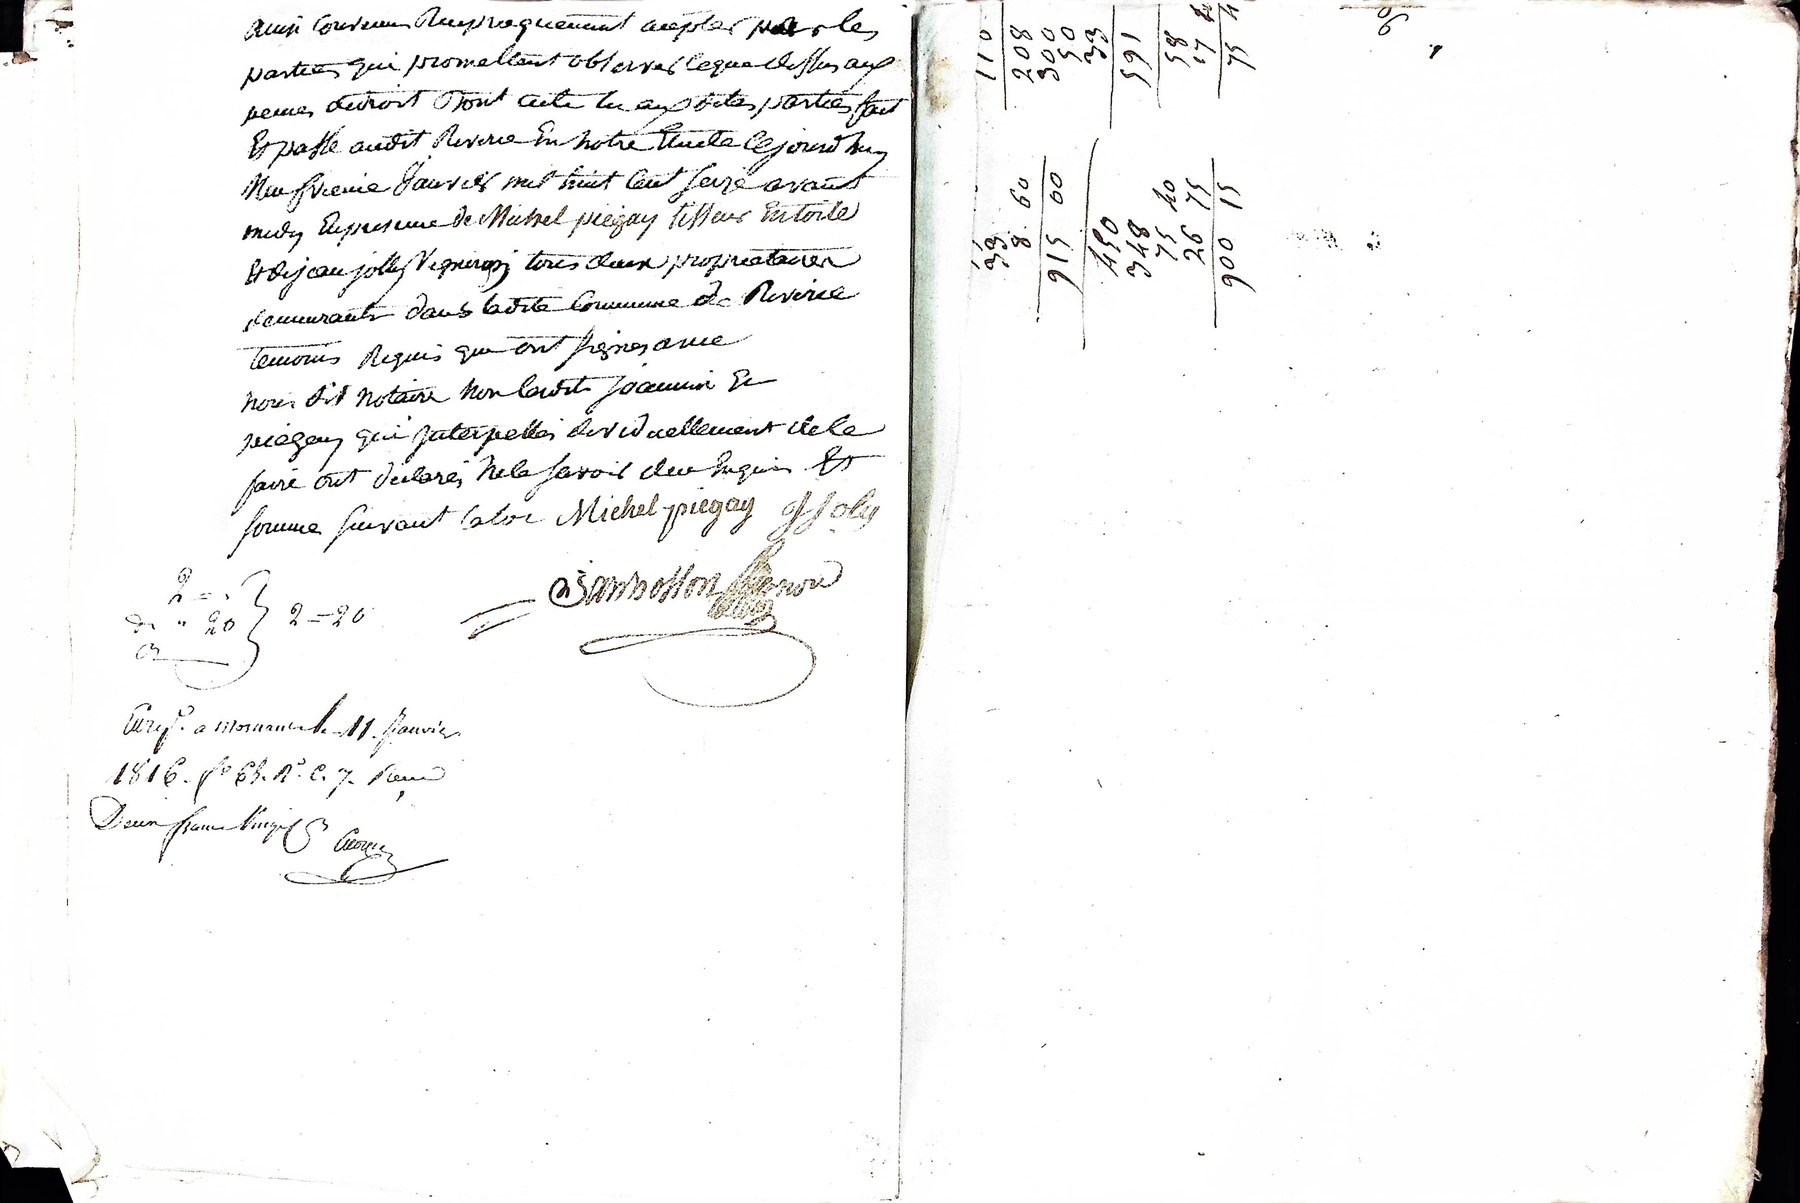 ainsi convenu Reciproquement accepter par les
parties qui promettent observer ceque dessus aux
peines dudroit Dont acte lu aux dites parties fait
Et passé audit Riverie En notre Etude Cejourd'huy
Neufvieme Janvier mil huit Cent seize avant
midy En presence de Michel piegay tisseur En toile
Et de jean jolly Vigneron tous deux proprietaires
demeurants dans ladite Commune de Riverie
temoins Requis qui ont signes avec
nous dit notaire non ledit joannin Et
piegay qui interpellés dividuellement de le
faire ont declarés ne le savoir dece Enquis Et
somme suivant la loi Michel piegay J Joly
2 = "
" 20 2 = 20
Enreg.t a mornant le 11 Janvier
1816. f.o 63. R.o C. 7. Recu
Deux francs vingt c
110
208
300
50
33
591
58
17
75
33
8 60
915 00
450
348
75 40
26 75
900 15